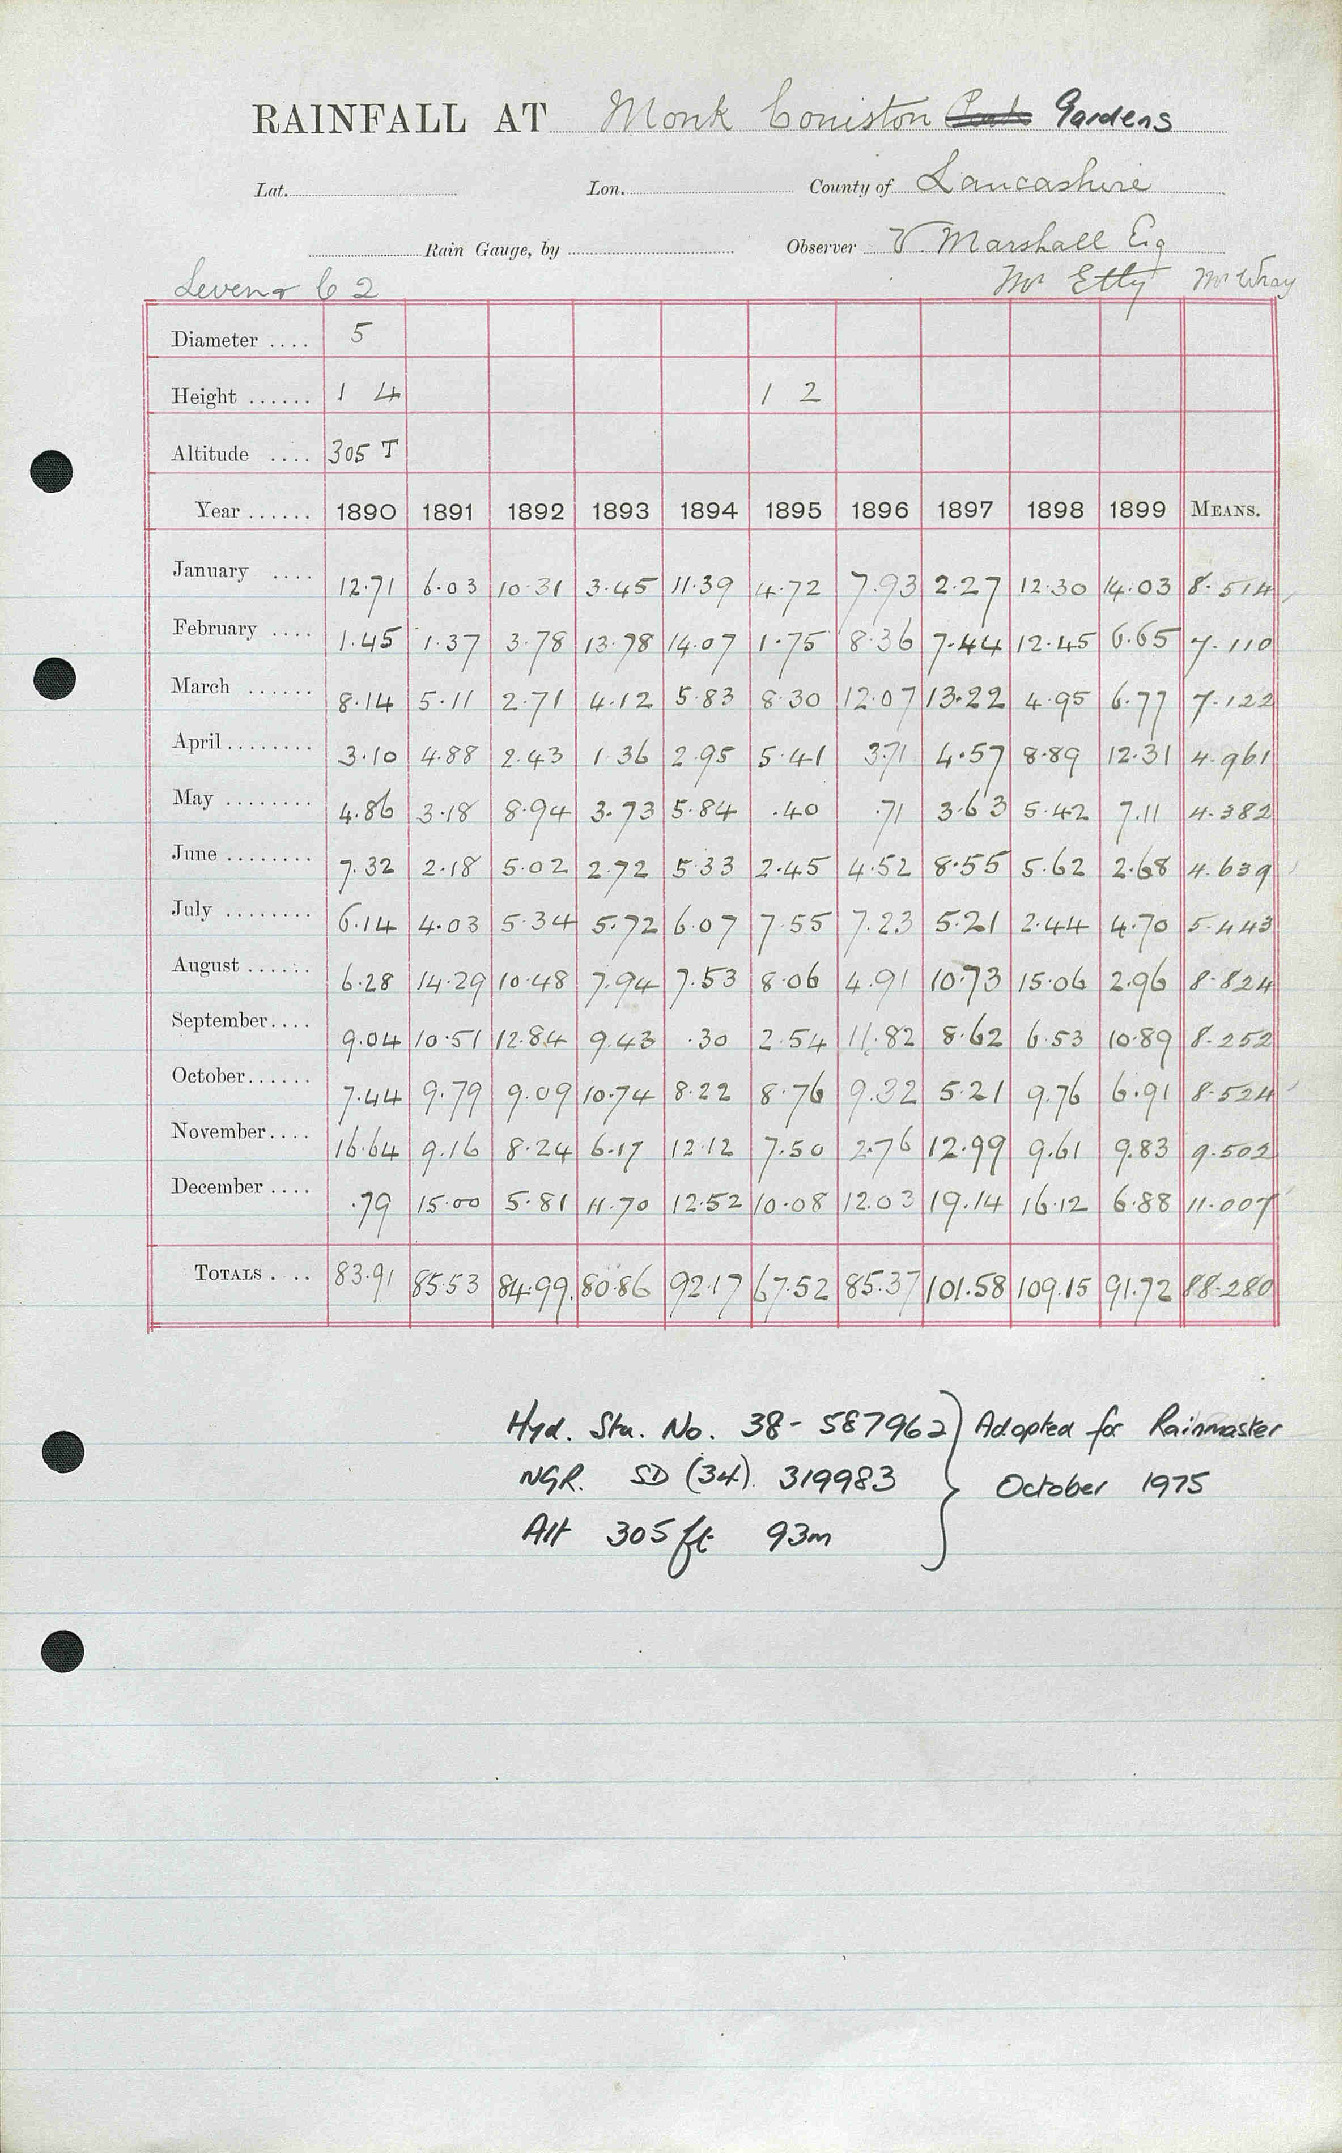 RAINFALL AT Monk Coniston Gardens
Lat. Lon. County of Lancashire
Rain Gauge, by Observer V. Marshall Esq
Leven & C 2 Mr Etty Mr Wray
Diameter .... 5
Height ...... 1 4 1 2
Altitude .... 305 T
Year ...... 1890 1891 1892 1893 1894 1895 1896 1897 1898 1899 MEANS.
January .... 12.71 6.03 10.31 3.45 11.39 4.72 7.93 2.27 12.30 14.03 8.514
February .... 1.45 1.37 3.78 13.78 14.07 1.75 8.36 7.44 12.45 6.65 7.110
March ...... 8.14 5.11 2.71 4.12 5.83 8.30 12.07 13.22 4.95 6.77 7.122
April ........ 3.10 4.88 2.43 1.36 2.95 5.41 3.71 4.57 8.89 12.31 4.961
May ........ 4.86 3.18 8.94 3.73 5.84 .40 .71 3.63 5.42 7.11 4.382
June ........ 7.32 2.18 5.02 2.72 5.33 2.45 4.52 8.55 5.62 2.68 4.639
July ........ 6.14 4.03 5.34 5.72 6.07 7.55 7.23 5.21 2.44 4.70 5.443
August ...... 6.28 14.29 10.48 7.94 7.53 8.06 4.91 10.73 15.06 2.96 8.824
September.... 9.04 10.51 12.84 9.43 .30 2.54 11.82 8.62 6.53 10.89 8.252
October...... 7.44 9.79 9.09 10.74 8.22 8.76 9.32 5.21 9.76 6.91 8.524
November.... 16.64 9.16 8.24 6.17 12.12 7.50 2.76 12.99 9.61 9.83 9.502
December .... .79 15.00 5.81 11.70 12.52 10.08 12.03 19.14 16.12 6.88 11.007
TOTALS . .. 83.91 85.53 84.99 80.86 92.17 67.52 85.37 101.58 109.15 91.72 88.280
Hyd. Sta. No. 38-587962 } Adopted for Rainmaster
NGR. SD (34). 319983 October 1975
Alt 305 ft 93m